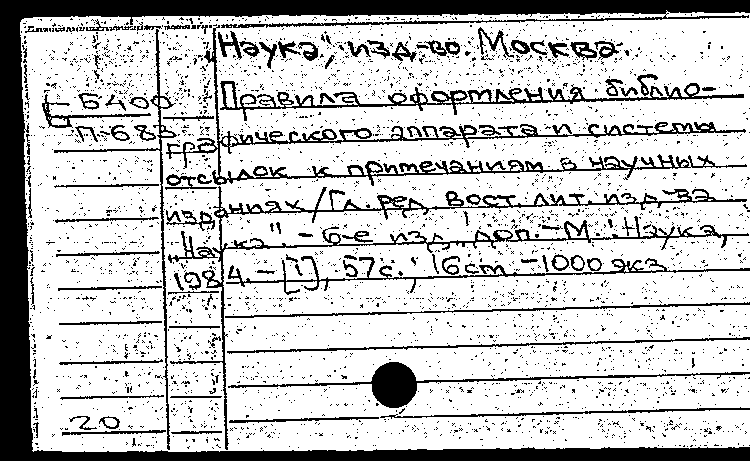 „Наука", изд-во. Москва.
Б400
П-683
Правила оформления библио-
графического аппарата и системы
отсылок к примечаниям в научных
изданиях/Гл. ред. Вост. лит. изд-ва
„Наука". - 6-е изд., доп. - М.: Наука,
1984. - [1], 57с.; 16см. - 1000 экз
20